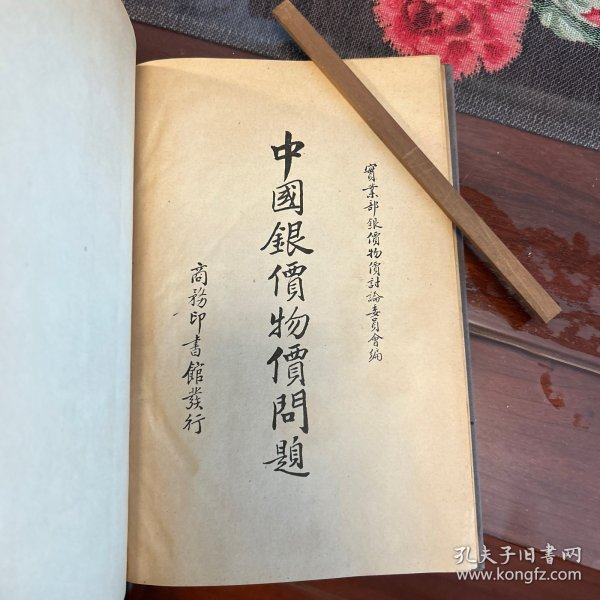 實業部銀價物價討論委員會編
中國銀價物價問題
商務印書館發行
孔夫子旧書网
www.kongfz.com